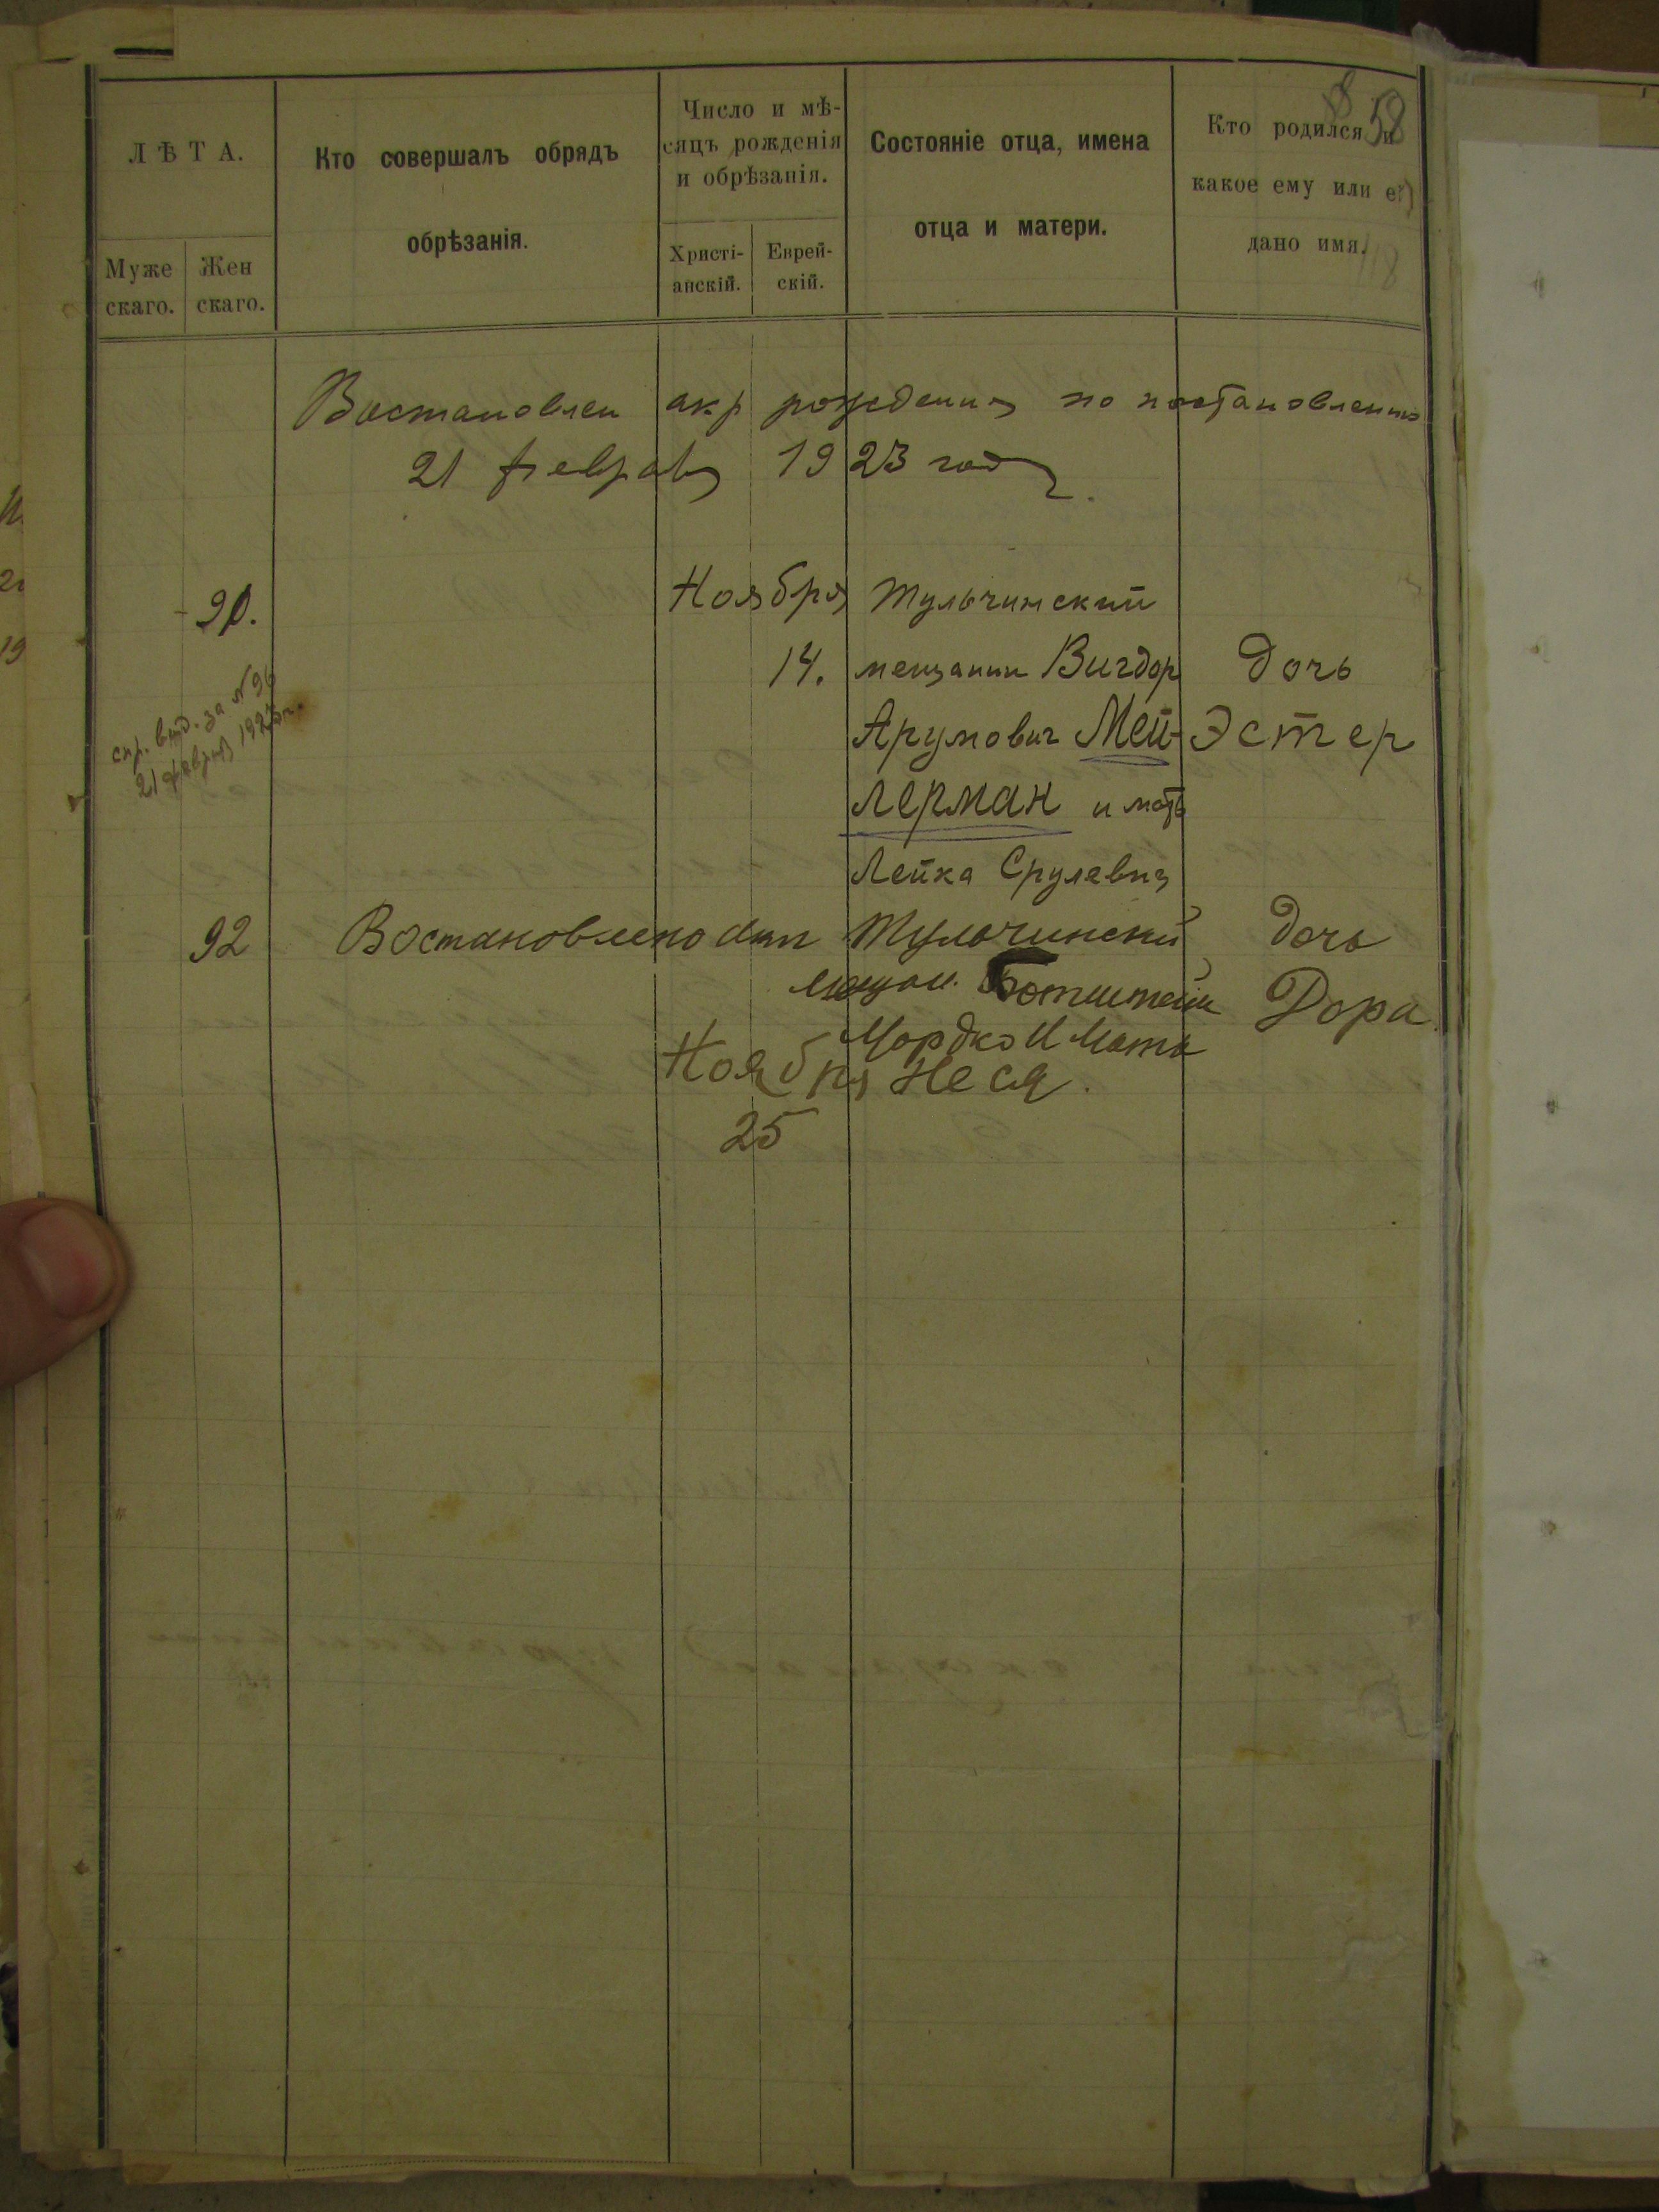 ЛѢТА.
Муже
скаго.
Жен
скаго.
Кто совершалъ обрядъ
обрѣзанія.
Число и мѣ-
сяцъ рожденія
и обрѣзанія.
Христі-
анскій.
Еврей-
скій.
Состояніе отца, имена
отца и матери.
58
Кто родился и
какое ему или ей
дано имя.
Востановлен акт рождения по постановлению
21 февраля 1923 года.
Ноября Тульчинский
14. мещанин Вигдор Дочь
Арумович Мей- Эстер
лерман и мать
Лейка Срулевна
спр. выд. за №96
21 февраля 1923 г.
92 Востановлено акт Тульчинский Дочь
мещан. Ботштейн Дора
Мордко И Мать
Ноября Неся.
25